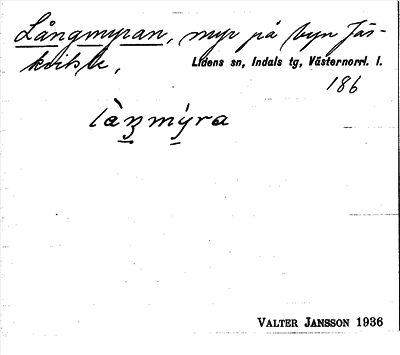 Långmyran, myr på byn Jäs-
kvikle,
Lidens sn, Indals tg, Västernorrl. l.
186
làŋmýra
VALTER JANSSON 1936